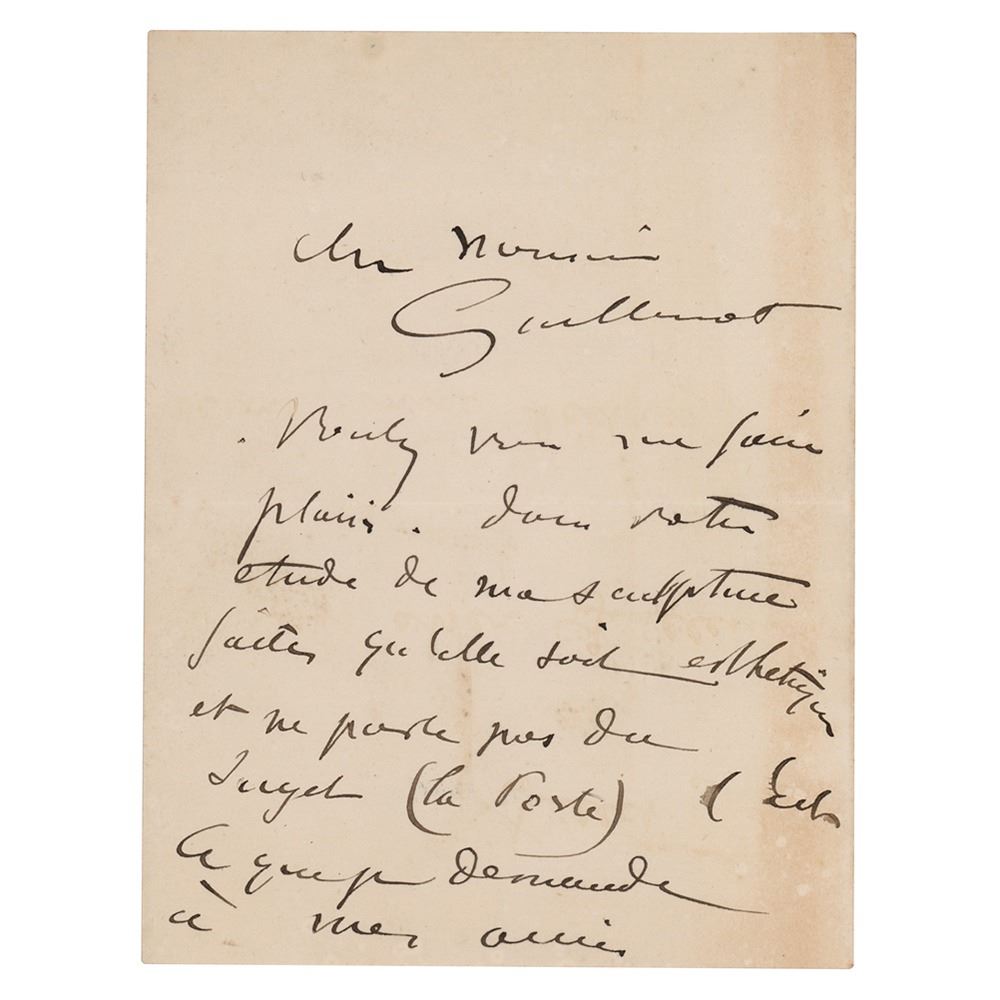 Cher Monsieur
Guillemot
Voulez vous me faire
plaisir. dans votre
etude de ma sculpture
faites qu'elle soit esthetique
et ne parle pas du
sujet (la Porte) C'est
ce que je demande
à mes amis